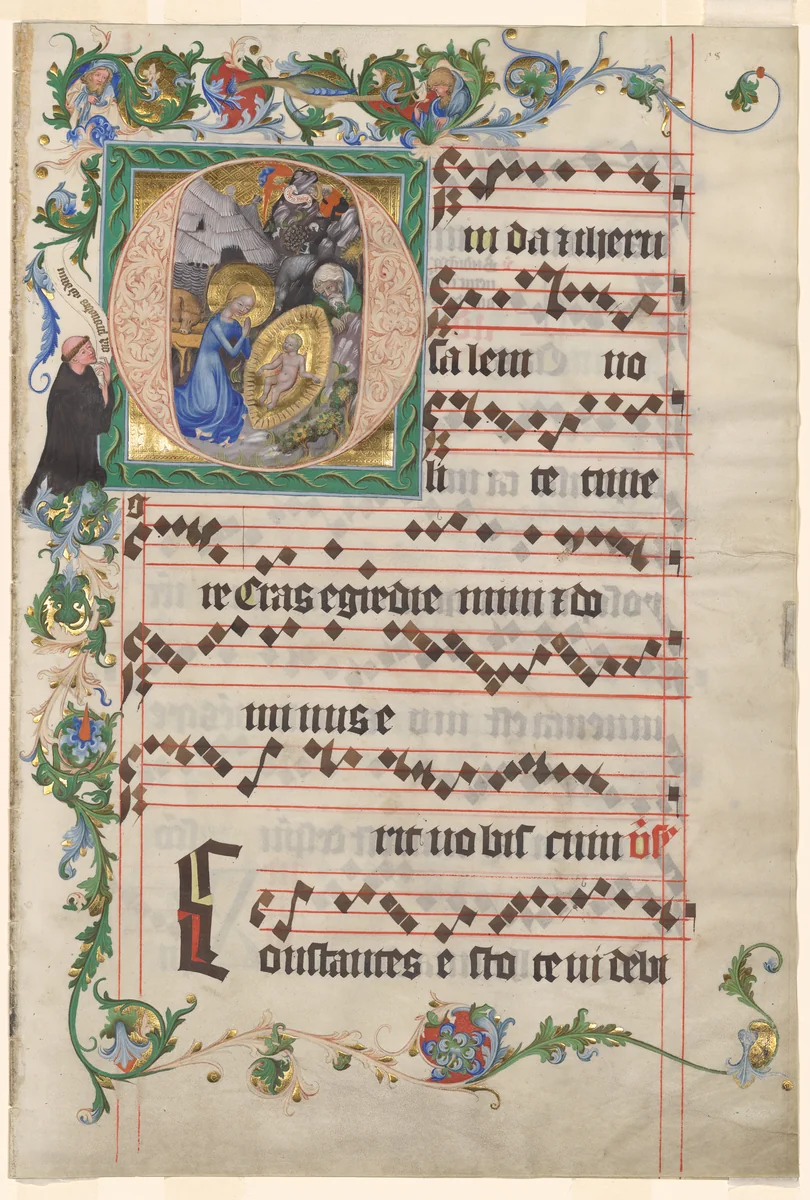 O
iu da ⁊ iheru
sa lem no
li te time
re Cras egredie mini ⁊ do
mi nus e
rit uo bis cum v̓s
C
onstantes e sto te ui debi